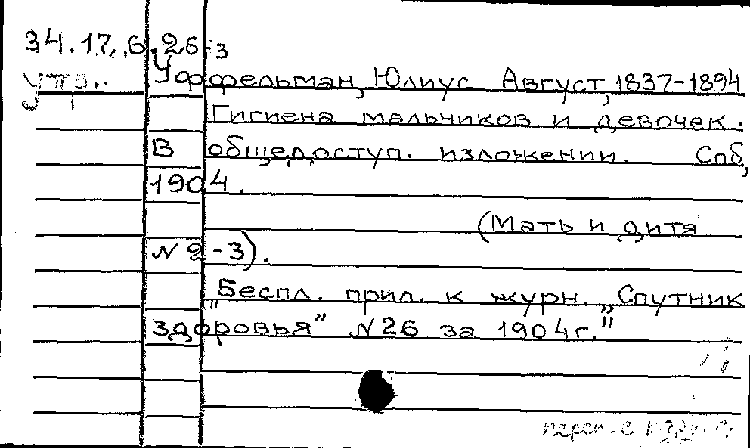 34.17.6.26:3
утр.. Уффельман, Юлиус Август, 1837-1894
Гигиена мальчиков и девочек.
В общедоступ. изложении. Спб,
1904.
(Мать и дитя
№ 2-3).
"Беспл. прил. к журн. "Спутник
здоровья" №26 за 1904г."